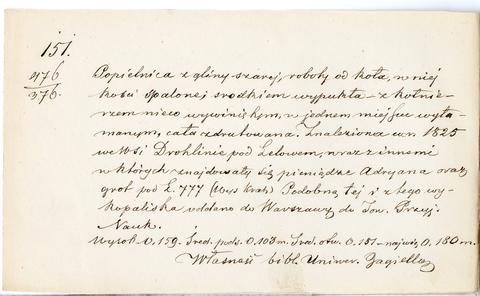 151.
476
376.
Popielnica z gliny szarej, roboty od koła, w niej
kości spalone, środkiem wypukła – z kołnie-
rzem nieco wywiniętym, w jednem miejscu wyła-
manym, cała zdrutowana. Znaleziona w r. 1825
we Wsi Drohlinie pod Lelowem, wraz z innemi
w których znajdowały się pieniądze Adryana oraz
grot pod L. 777 (Wys. Krak) Podobną tej i z tego wy-
kopaliska oddano do Warszawy do Tow. Przyj.
Nauk.
Wysok 0,159. Śred. pods. 0.103 m. Śred. otw. 0.151 – najwię. 0.180 m.
Własność bibl. Uniwer. Jagiell.